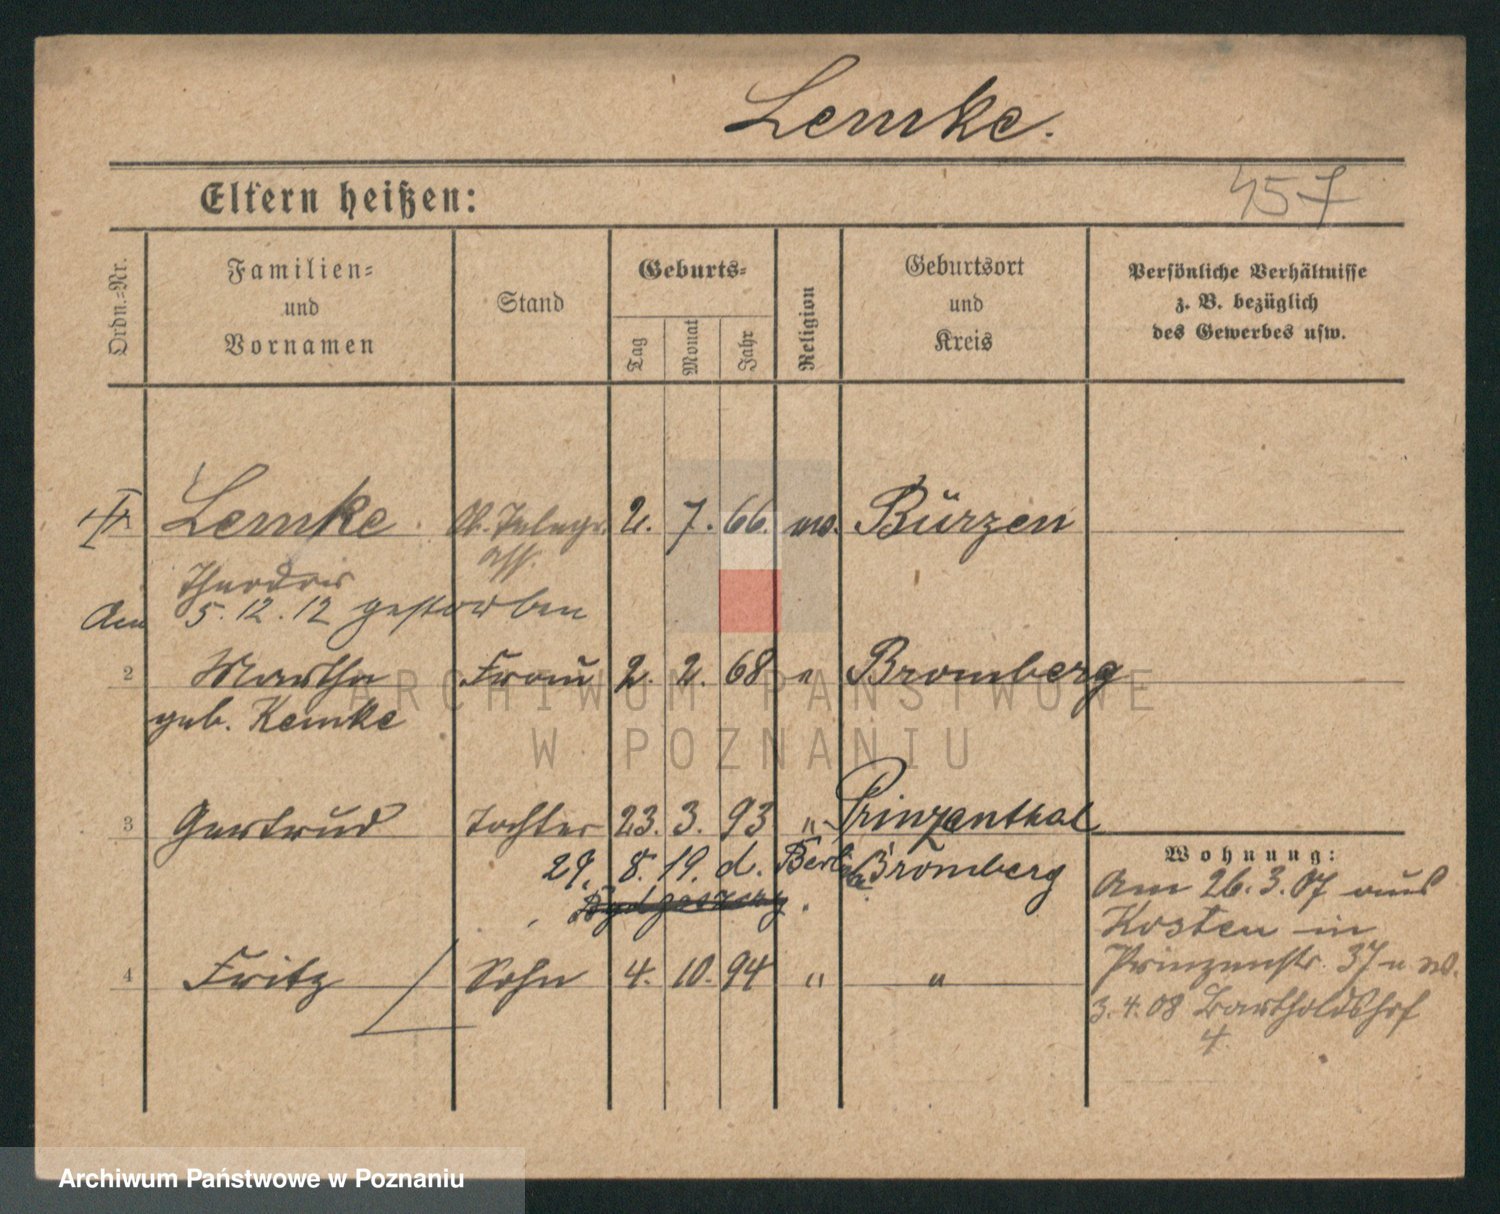 Lemke.
457
Eltern heißen:
Ordn.-Nr.
Familien-
und
Vornamen
Stand
Geburts-
Tag
Monat
Jahr
Religion
Geburtsort
und
Kreis
Persönliche Verhältnisse
z. B. bezüglich
des Gewerbes usw.
Lemke. Ob. Telegr. 2. 7. 66. ev. Bürzen
Ass.
Theodor
Am 5.12.12 gestorben
2 Martha Frau 2. 2. 68 " Bromberg
geb. Kemke
3 Gertrud Tochter 23. 3. 93 " Prinzenthal
29. 8. 19. d. Berlin Bromberg
Bydgoszcz.
4 Fritz Sohn 4. 10. 94 " "
Wohnung:
Am 26.3.07 aus
Kosten in
Prinzenstr. 37
3.4.08 Bartholdshof
4.
ARCHIWUM PAŃSTWOWE
W POZNANIU
Archiwum Państwowe w Poznaniu